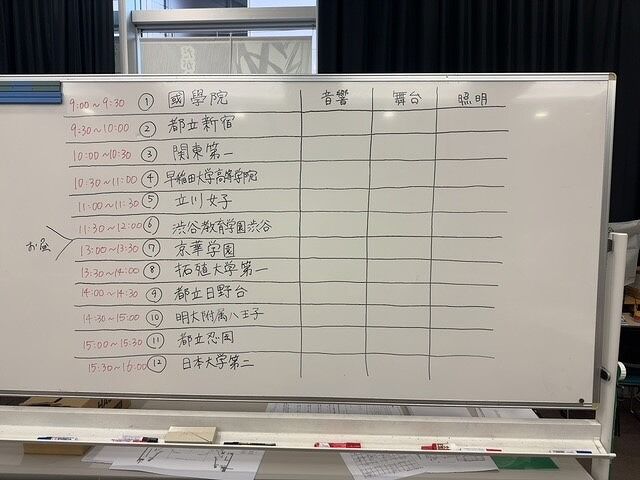 音響 舞台 照明
9:00～9:30 ① 國學院
9:30～10:00 ② 都立新宿
10:00～10:30 ③ 関東第一
10:30～11:00 ④ 早稲田大学高等学院
11:00～11:30 ⑤ 立川女子
11:30～12:00 ⑥ 渋谷教育学園渋谷
お昼
13:00～13:30 ⑦ 京華学園
13:30～14:00 ⑧ 拓殖大学第一
14:00～14:30 ⑨ 都立日野台
14:30～15:00 ⑩ 明大附属八王子
15:00～15:30 ⑪ 都立忍岡
15:30～16:00 ⑫ 日本大学第二